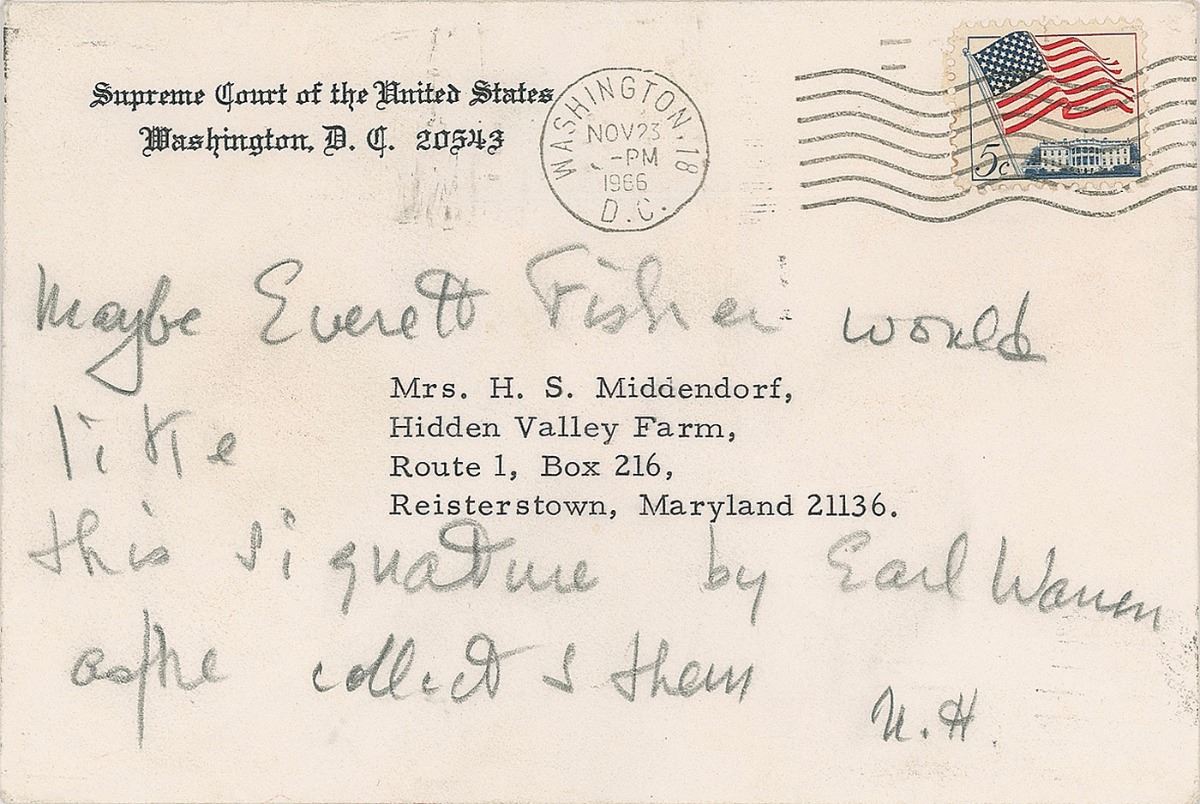 Supreme Court of the United States
Washington, D. C. 20543
WASHINGTON, 18
NOV 23
-PM
1966
D.C.
5c
Maybe Everett Fisher would
Mrs. H. S. Middendorf,
Hidden Valley Farm,
Route 1, Box 216,
Reisterstown, Maryland 21136.
like
this signature by Earl Warren
as he collects them
N.H.